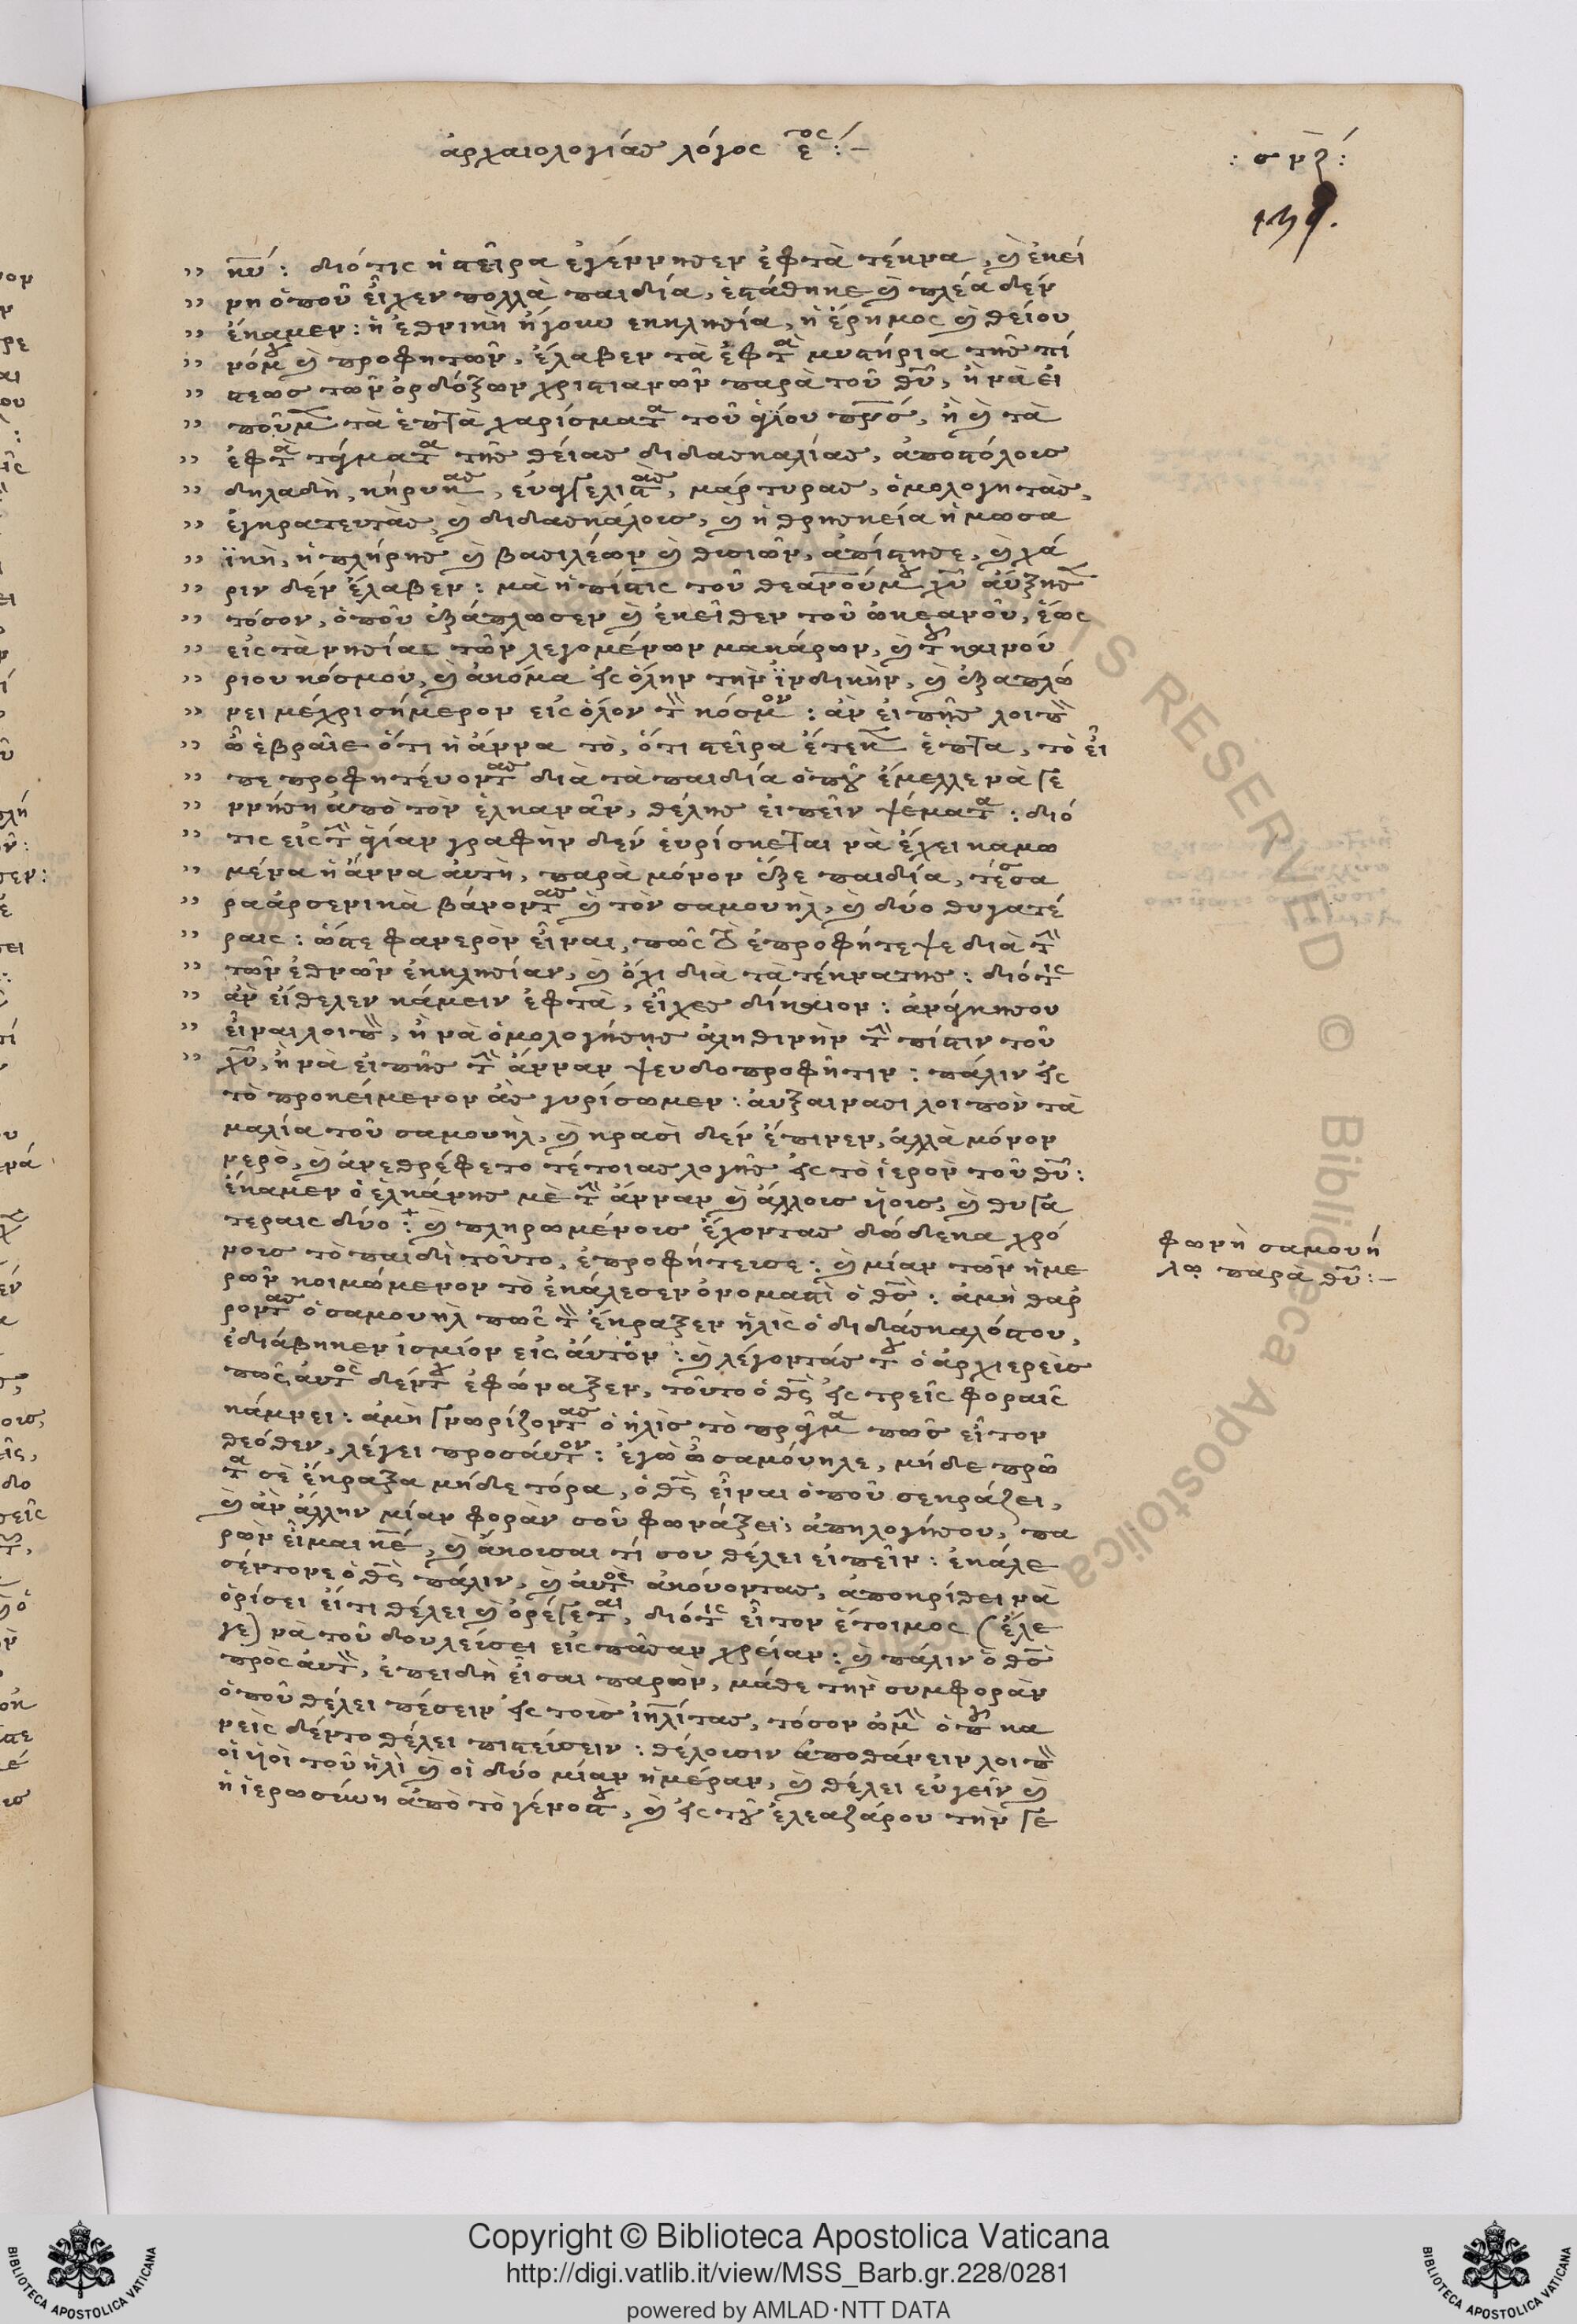 ἀρχαιολογίας λόγος ε^ος :-
: σκζ :
νῦ : διότις ἡ στεῖρα ἐγέννησεν ἐφτὰ τέκνα, ϗ ἐκεί
νη ὁποῦ εἶχεν πολλὰ παιδία, ἐστάθηκε ϗ πλέα δὲν
ἔκαμεν : ἡ ἐθνικὴ ἤγουν εκκλησία, ἡ ἔρημος ϗ θείου
νόμου ϗ προφητῶν, ἔλαβεν τὰ ἐφτὰ μυστήρια τῆς πί
στεως τῶν ὀρδόξων χριστιανῶν παρὰ τοῦ θῦ, ἢ νὰ εἰ
ποῦμεν τὰ ἑπτὰ χαρίσματα τοῦ ἁγίου πνσ, ἢ ϗ τὰ
ἐφτὰ τάγματα τῆς θείας διδασκαλίας, ἀποστόλους
δηλαδὴ, κήρυκας, εὐαγγελιστὰς, μάρτυρας, ὁμολογητὰς,
ἐγκρατευτὰς, ϗ διδασκάλους, ϗ ἡ θρησκεία ἡ μωσα
ϊκὴ, ἡ πλήρης ϗ βασιλέων ϗ θυσιῶν, ἀπίστησε, ϗ χά
ριν δὲν ἔλαβεν : μὰ ἡ πίστις τοῦ θεανοῦ μου χῦ αὔξησεν
τόσον, ὁποῦ ἐξάπλωσεν ϗ ἐκεῖθεν τοῦ ὠκεανοῦ, ἕως
εἰς τὰ νησία τῶν λεγομένων μακάρων, ϗ τοῦ καινού
ριου κόσμου, ϗ ἀκόμα εἰς ὅλην τὴν ἰνδικὴν, ϗ ἐξαπλώ
νει μέχρι σήμερον εἰς ὅλον τὸν κόσμον : ἂν εἰπῆς λοιπὸν
ὦ ἑβραῖε ὅτι ἡ ἄννα τὸ, ὅτι στεῖρα ἔτεκεν ἑπτα, τὸ εἶ
πε προφητεύοντας διὰ τὰ παιδία ὁποῦ ἔμελλε νὰ γε
ννήση ἀπὸ τὸν ἐλκανᾶν, θέλης εἰπεῖν ψέματα : διό
τις εἰς τὴν ἁγίαν γραφὴν δὲν εὑρίσκεται νὰ ἔχει καμω
μένα ἡ ἄννα ἀυτὴ, παρὰ μόνον ἕξε παιδία, τέσσα
ρα ἀρσενικὰ βάνοντας ϗ τὸν σαμουὴλ, ϗ δύο θυγατέ
ραις : ὥστε φανερὸν εἶναι, πῶς τοῦτο ἐπροφήτεψε διὰ τὴν
τῶν ἐθνῶν ἐκκλησίαν, ϗ ὄχι διὰ τὰ τέκνα της : διότις
ἂν εἴθελεν κάμειν ἐφτὰ, εἶχες δίκαιον : ἀνάγκη σου
εἶναι λοιπὸν, ἢ νὰ ὁμολογήσης ἀληθινὴν τὴν πίστιν τοῦ
χῦ, ἢ νὰ εἰπῆς τὴν ἄνναν ψευδοπροφῆτιν : πάλιν εἰς
τὸ προκείμενον ἀς γυρίσωμεν : ἀυξαίνασι λοιπὸν τὰ
μαλία τοῦ σαμουὴλ, ϗ κρασὶ δὲν ἔπινεν, ἀλλὰ μόνον
νερὸ, ϗ ἀνεθρέφετο τέτοιας λογῆς εἰς τὸ ἱερὸν τοῦ θῦ :
ἔκαμεν ὁ ἐλκάνης μὲ τὴν ἄνναν ϗ ἄλλους ὑιους, ϗ θυγα
τεραις δύο : ϗ πληρωμένους ἔχοντας δώδεκα χρό
νους τὸ παιδὶ τοῦτο, ἐπροφήτευσε : ϗ μίαν τῶν ἡμε
ρῶν κοιμώμενον τὸ ἐκάλεσεν ὀνομαστὶ ὁ θς : ἀμὴ θαρ
ροντας ὁ σαμουὴλ πῶς τὸν ἔκραξεν ἠλὶς ὁ διδάσκαλός του,
ἐδιάβηκεν ἰσμιὸν εἰς ἀυτὸν : ϗ λέγοντάς του ὁ ἀρχιερεὺς
πῶς ἀυτὸς δὲν τοῦ ἐφώναξεν, τοῦτο ὁ θς εἰς τρεῖς φοραῖς
κάμνει : ἀμὴ γνωρίζοντας ὁ ἠλὶς τὸ πρᾶγμα πῶς εἶτον
θεόθεν, λέγει προς ἀυτὸν : ἐγὼ ὦ σαμόυηλε, μήδε πρῶ
τα σὲ ἔκραξα μήδε τόρα, ὁ θς εἶναι ὁποῦ σε κράζει,
ϗ ἂν ἄλλην μίαν φορὰν σοῦ φωνάξει, ἀπηλογήσου, πα
ρὼν εἶμαι κε, ϗ ἄκουσαι τί σου θέλει εἰπεῖν : ἐκάλε
σέντονε ὁ θς πάλιν, ϗ ἀυτὸς ἀκόυοντας, ἀποκρίθει νὰ
ὁρίσει εἴτι θέλει ϗ ὀρέγεται, διότις εἶτον ἕτοιμος (ἔλε
γε) νὰ τοῦ δουλεύσει εἰς πᾶσαν χρείαν : ϗ πάλιν ὁ θς
πρὸς ἀυτὸν, ἐπειδὴ εἶσαι παρὼν, μάθε τὴν συμφορὰν
ὁποῦ θέλει πέσειν εἰς τοὺς ἰηλίτας, τόσον ὠμὴν ὁποῦ κα
νεὶς δέντο θέλει πιστεύσειν : θέλουσιν ἀποθάνειν λοιπὸν
οἱ ὑιοὶ τοῦ ἠλὶ ϗ οἱ δύο μίαν ἡμέραν, ϗ θέλει εὐγεῖν ϗ
ἡ ἱερωσύνη ἀπὸ τὸ γένος του, ϗ εἰς τοῦ ἐλεαζάρου τὴν γε
φωνὴ σαμουή
λῳ παρὰ θῦ :-
RIGHTS RESERVED © Biblioteca Apostolica Vaticana
Copyright © Biblioteca Apostolica Vaticana
http://digi.vatlib.it/view/MSS_Barb.gr.228/0281
powered by AMLAD·NTT DATA
BIBLIOTECA APOSTOLICA VATICANA
BIBLIOTECA APOSTOLICA VATICANA